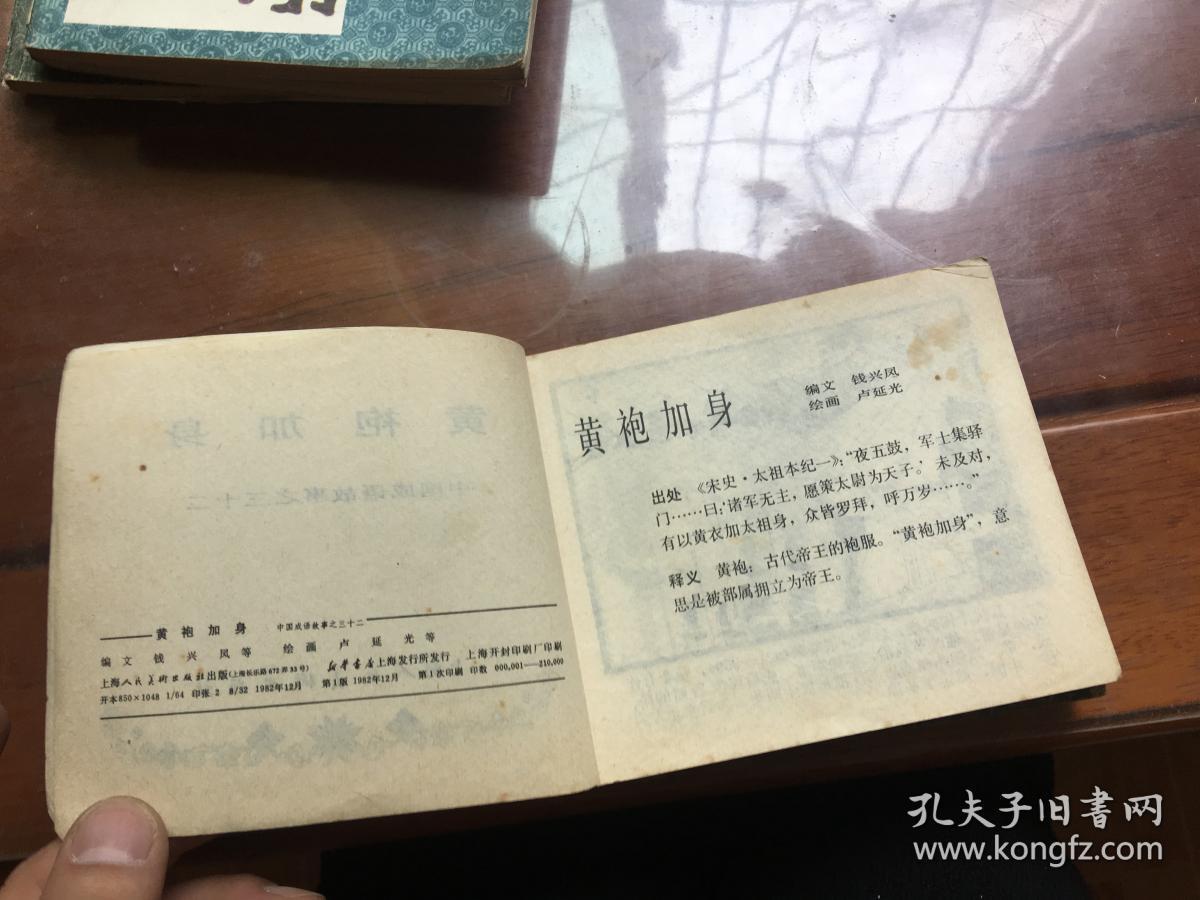 黄袍加身 中国成语故事之三十二
编文 钱兴凤等 绘画 卢延光等
上海人民美术出版社出版(上海长乐路672弄33号) 新华书店上海发行所发行 上海开封印刷厂印刷
开本850×1048 1/64 印张 2 8/32 1982年12月 第1版 1982年12月 第1次印刷 印数 000,001—210,000
黄袍加身
编文 钱兴凤
绘画 卢延光
出处 《宋史·太祖本纪一》:“夜五鼓,军士集驿
门……曰:‘诸军无主,愿策太尉为天子。’未及对,
有以黄衣加太祖身,众皆罗拜,呼万岁……。”
释义 黄袍:古代帝王的袍服。“黄袍加身”,意
思是被部属拥立为帝王。
孔夫子旧書网
www.kongfz.com